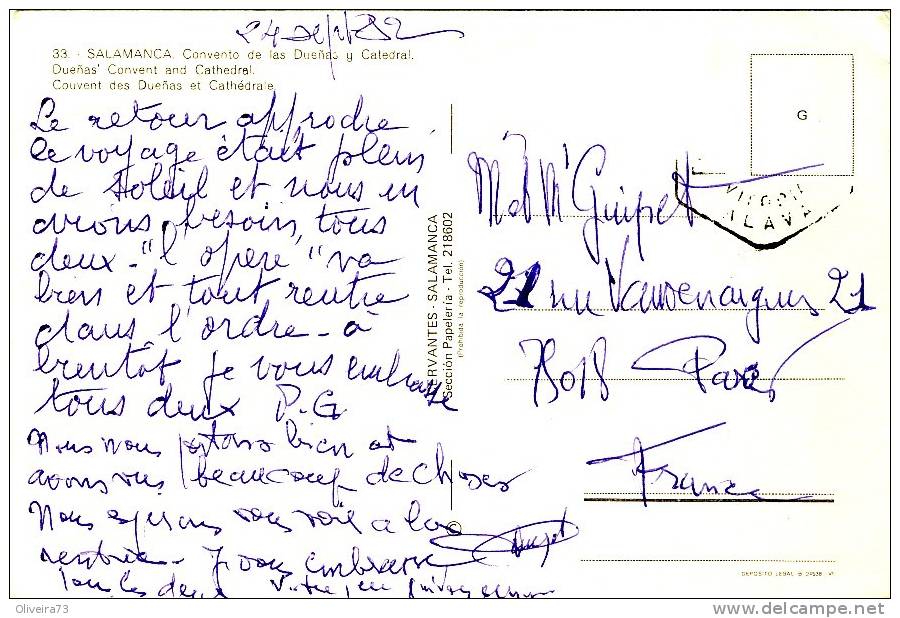 24 sept 82
33. - SALAMANCA. Convento de las Dueñas y Catedral.
Dueñas' Convent and Cathedral.
Couvent des Dueñas et Cathédrale.
Le retour approche
le voyage était plein
de Soleil et nous en
avions besoin, tous
deux - "l'opéré" va
bien et tout rentre
dans l'ordre - à
bientôt je vous embrasse
tous deux P.G
Nous nous portons bien et
avons vu beaucoup de choses
Nous espérons vous voir à la
rentrée - Je vous embrasse
tous les deux
ERVANTES - SALAMANCA
Sección Papelería - Tel. 218602
(Prohibida la reproducción)
©
G
VITORIA
ALAVA
M et Mme Guipet
21 rue Vauvenargues 21
75018 Paris
France
DEPOSITO LEGAL B
Oliveira73
www.delcampe.net